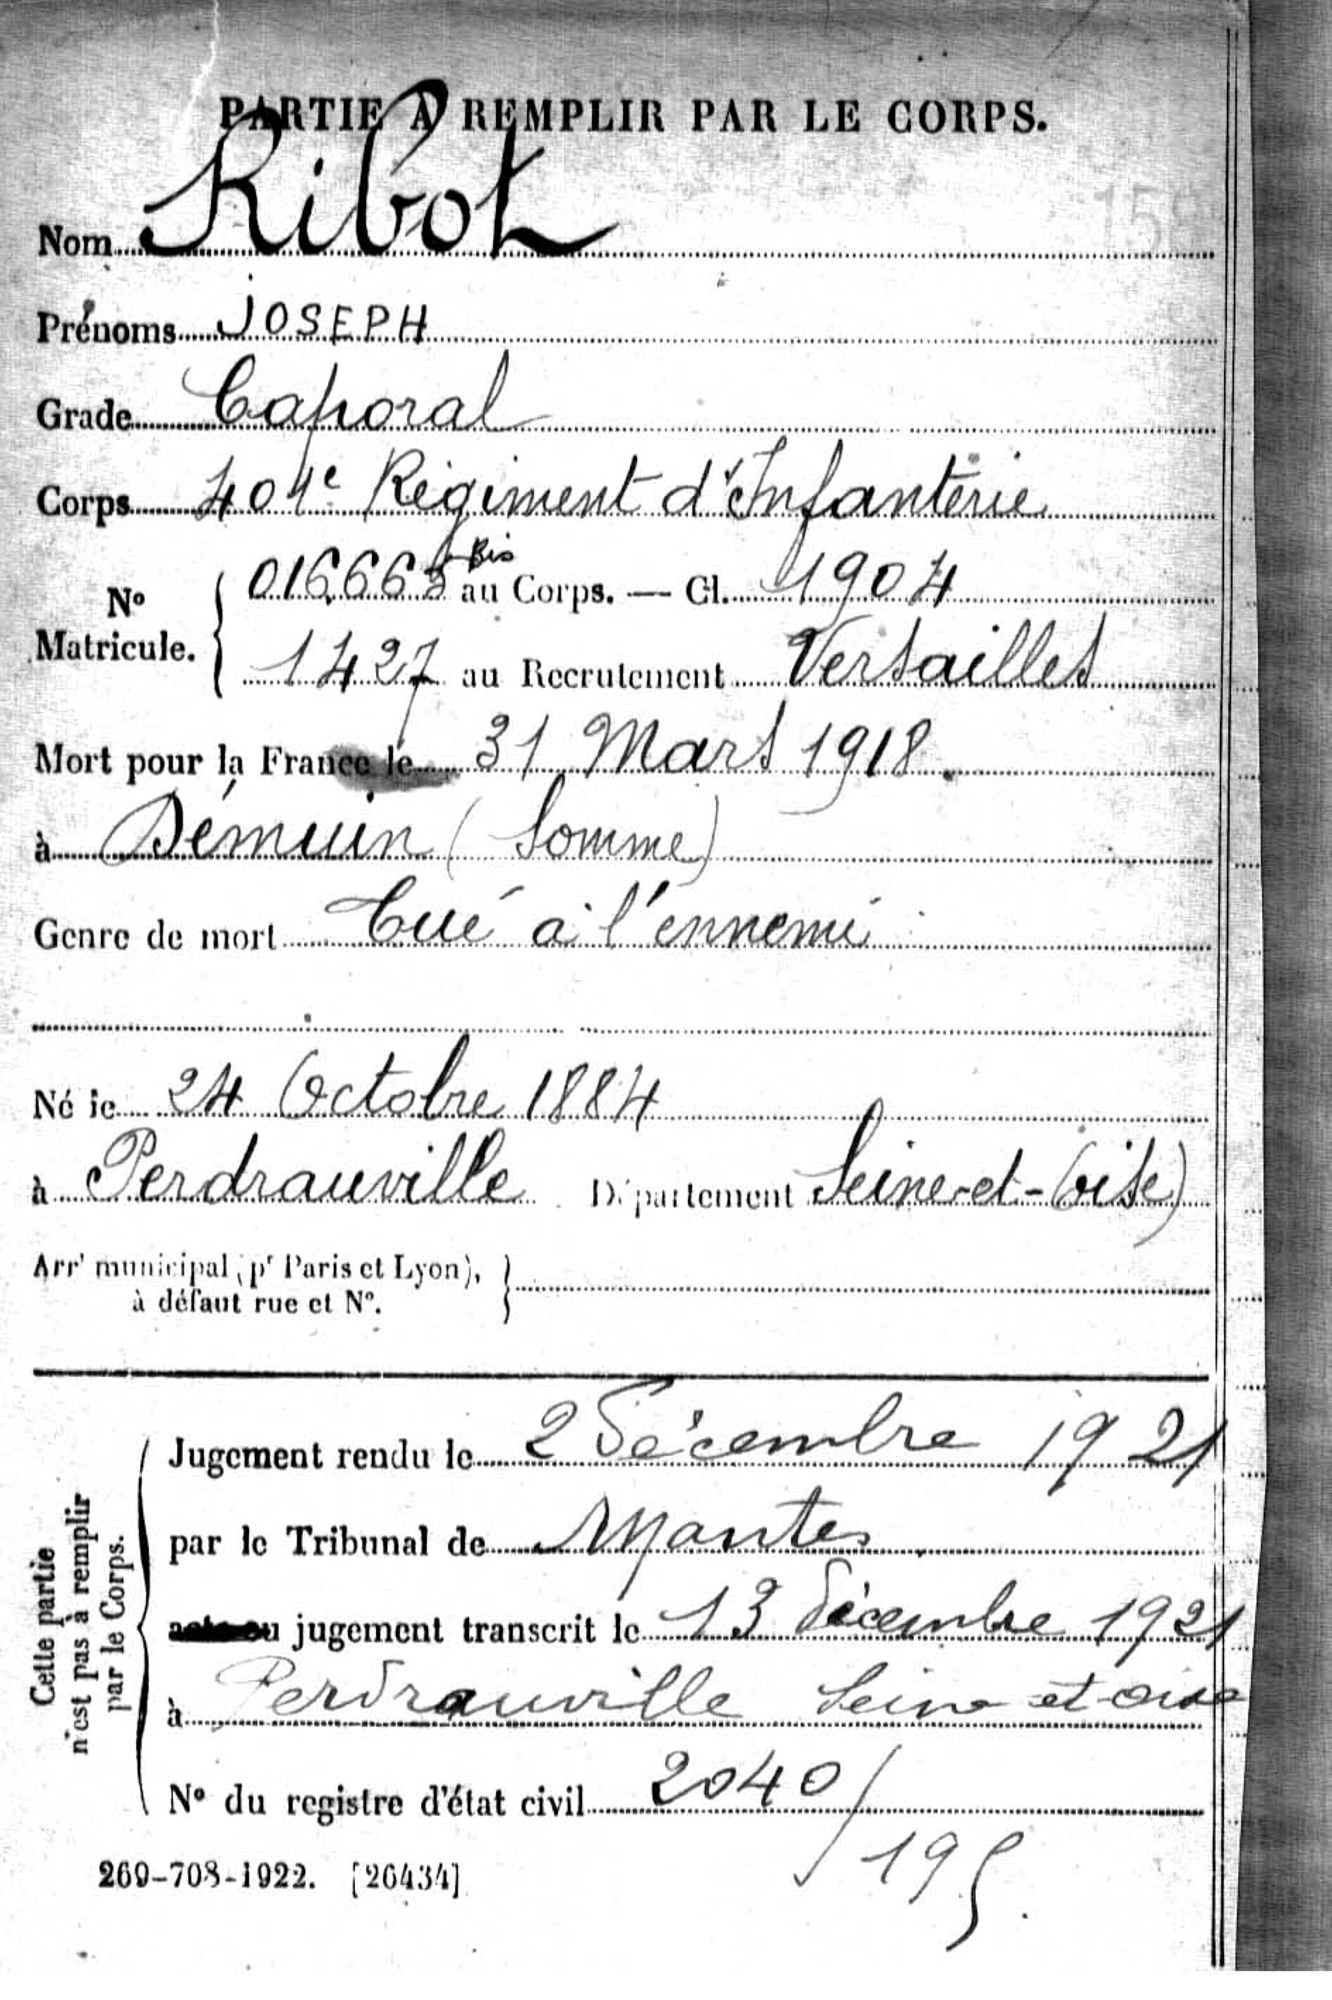 PARTIE À REMPLIR PAR LE CORPS.
Nom Ribot
Prénoms JOSEPH
Grade Caporal
Corps 401e Régiment d'Infanterie
No Matricule. { 016663 Bis au Corps. — Cl. 1904
1427 au Recrutement Versailles
Mort pour la France le 31 Mars 1918.
à Démuin (Somme)
Genre de mort Tué à l'ennemi
Né le 24 Octobre 1884
à Perdrauville Département Seine-et-Oise)
Arrt municipal (pr Paris et Lyon),
à défaut rue et No.
Cette partie n'est pas à remplir par le Corps.
Jugement rendu le 2 Décembre 1921
par le Tribunal de Mantes
acte ou jugement transcrit le 13 Décembre 1921
à Perdrauville Seine et Oise
No du registre d'état civil 2040/
195
269-708-1922. [26434]